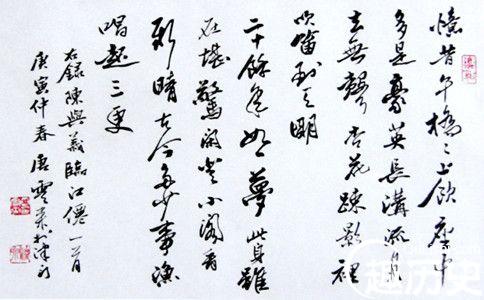 憶昔午橋々上飲座中
多是豪英長溝流月
去無聲杏花疎影裡
吹笛到天明
二十餘年如一夢此身雖
在堪驚閑登小閣看
新晴古今多少事漁
唱起三更
右錄陳與義臨江僊一首
庚寅仲春唐雲來於津門
趣历史